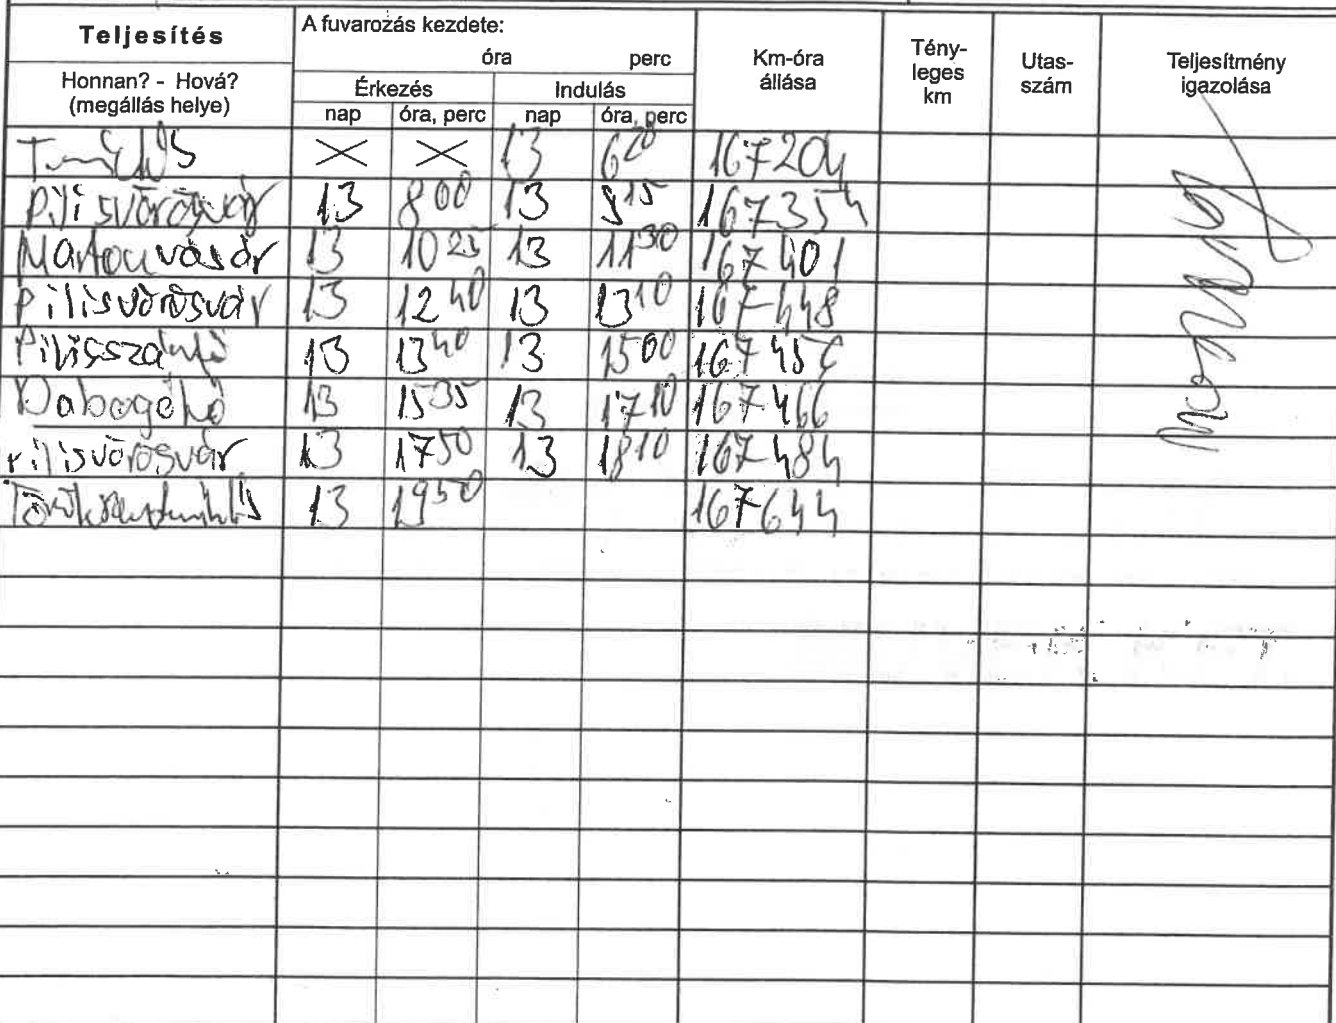 Teljesítés
Honnan? - Hová?
(megállás helye)
A fuvarozás kezdete:
óra perc
Érkezés Indulás
nap óra, perc nap óra, perc
Km-óra
állása
Tény-
leges
km
Utas-
szám
Teljesítmény
igazolása
13 167204
Pilisvörösvár 13 8 00 13 9 15 167354
Martonvásár 13 10 25 13 11 30 167401
Pilisvörösvár 13 12 40 13 13 10 167448
13 13 40 13 15 00
13 15 35 13 17 10 167466
Pilisvörösvár 13 17 50 13 18 10 167484
Törökszentmiklós 13 19 50 167644